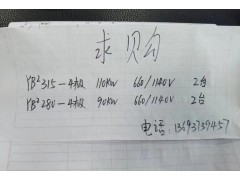 求购
YB²315-4极 110KW 660/1140V 2台
YB²280-4极 90KW 660/1140V 2台
电话:13693739457